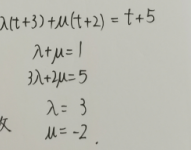 λ(t+3)+μ(t+2)=t+5
λ+μ=1
3λ+2μ=5
λ=3
μ=-2.